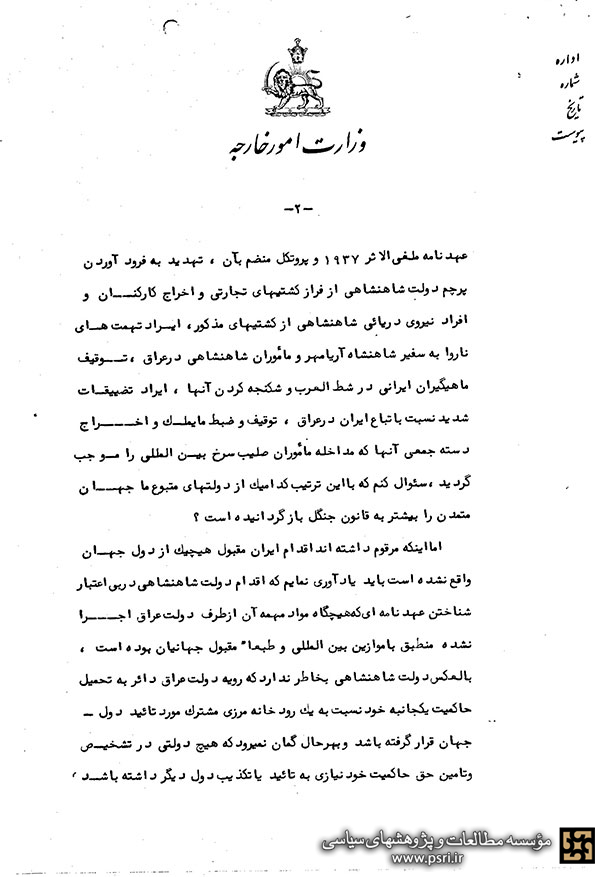 اداره
شماره
تاریخ
پیوست
وزارت امور خارجه
-۲-
عهدنامه ملغی الاثر ۱۹۳۷ و پروتکل منضم بآن ، تهدید به فرود آوردن
پرچم دولت شاهنشاهی از فراز کشتیهای تجارتی و اخراج کارکنان و
افراد نیروی دریائی شاهنشاهی از کشتیهای مذکور ، ایراد تهمت های
ناروا به سفیر شاهنشاه آریامهر و مأموران شاهنشاهی در عراق ، توقیف
ماهیگیران ایرانی در شط العرب و شکنجه کردن آنها ، ایراد تضییقات
شدید نسبت باتباع ایران در عراق ، توقیف و ضبط مایملك و اخراج
دسته جمعی آنها که مداخله مأموران صلیب سرخ بین المللی را موجب
گردید ، سئوال کنم که با این ترتیب کدامیك از دولتهای متبوع ما جهان
متمدن را بیشتر به قانون جنگل بازگردانیده است ؟
اما اینکه مرقوم داشته اند اقدام ایران مقبول هیچیك از دول جهان
واقع نشده است باید یادآوری نمایم که اقدام دولت شاهنشاهی در بی اعتبار
شناختن عهدنامه ای که هیچگاه مواد مهمه آن از طرف دولت عراق اجرا
نشده منطبق با موازین بین المللی و طبعاً مقبول جهانیان بوده است ،
بالعکس دولت شاهنشاهی بخاطر ندارد که رویه دولت عراق دائر به تحمیل
حاکمیت یکجانبه خود نسبت به یك رودخانه مرزی مشترك مورد تائید دول -
جهان قرار گرفته باشد و بهرحال گمان نمیرود که هیچ دولتی در تشخیص
و تامین حق حاکمیت خود نیازی به تائید یا تکذیب دول دیگر داشته باشد ،
مؤسسه مطالعات و پژوهشهای سیاسی
www.psri.ir